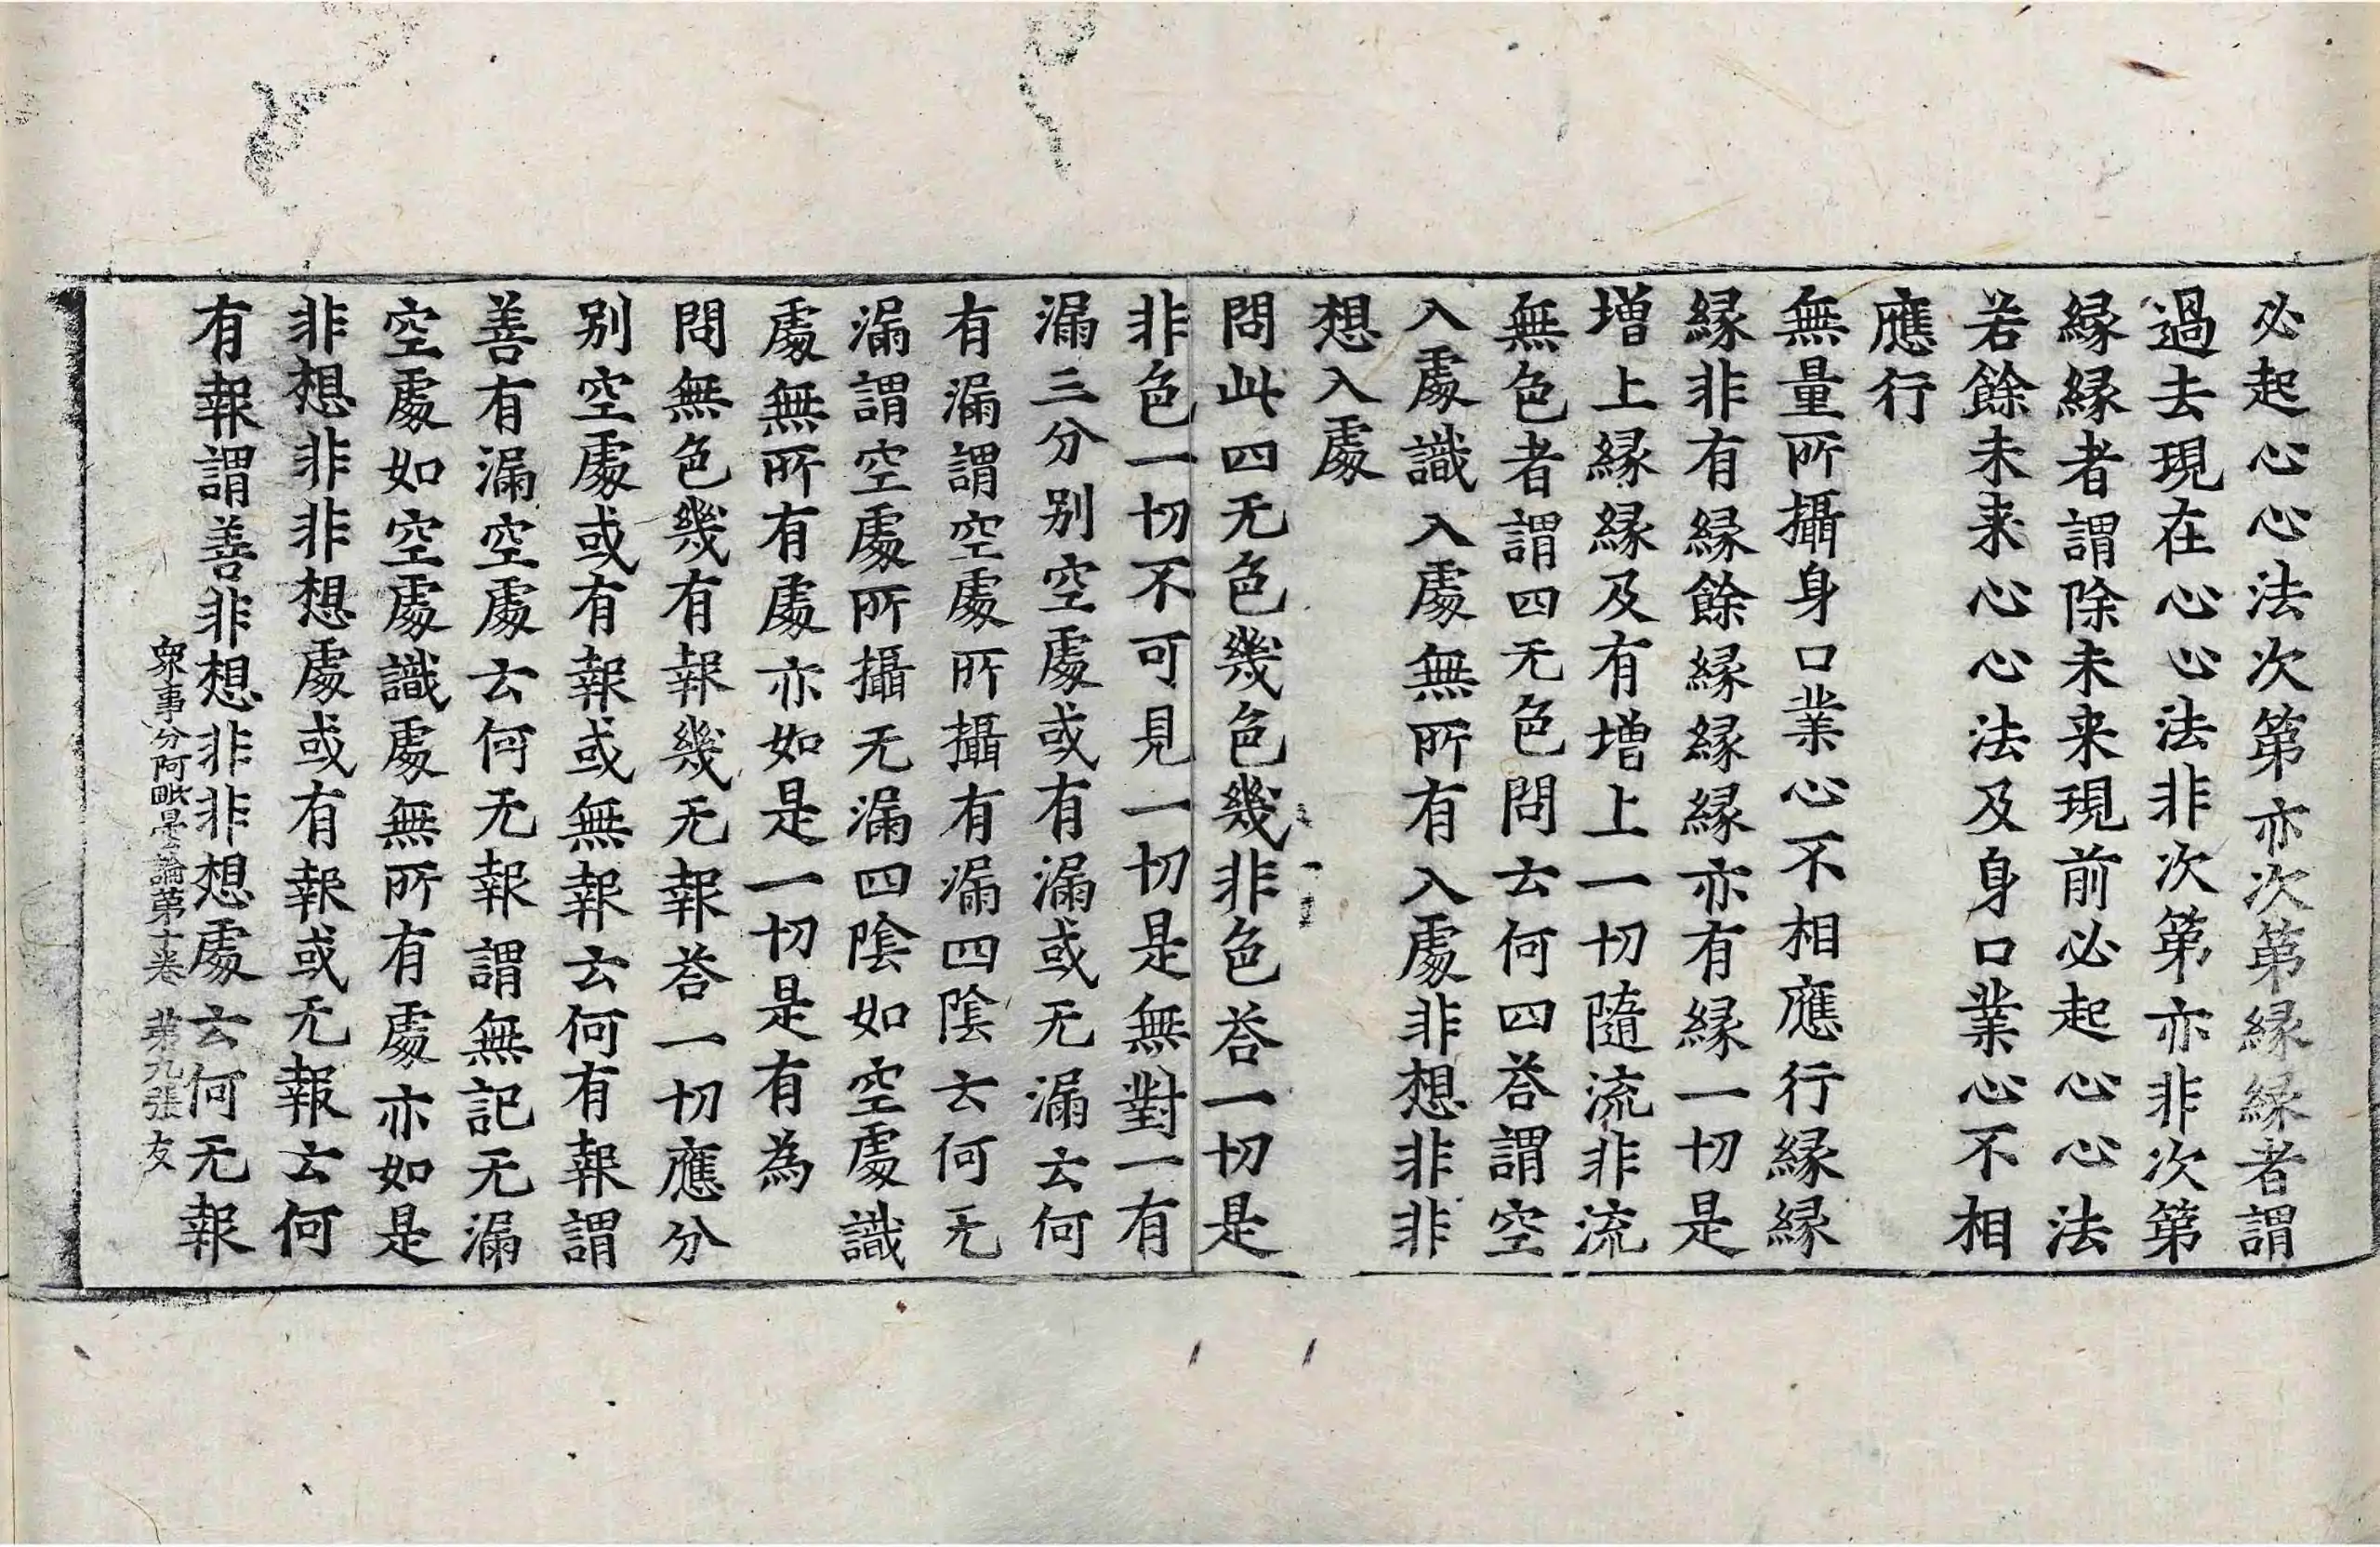 必起心心法次第亦次第縁縁者謂
過去現在心心法非次第亦非次第
縁縁者謂除未来現前必起心心法
若餘未来心心法及身口業心不相
應行
無量所攝身口業心不相應行縁縁
縁非有縁餘縁縁縁亦有縁一切是
増上縁縁及有増上一切隨流非流
無色者謂四无色問云何四荅謂空
入處識入處無所有入處非想非非
想入處
問此四无色幾色幾非色荅一切是
非色一切不可見一切是無對一有
漏三分别空處或有漏或无漏云何
有漏謂空處所攝有漏四陰云何无
漏謂空處所攝无漏四陰如空處識
處無所有處亦如是一切是有為
問無色幾有報幾无報荅一切應分
别空處或有報或無報云何有報謂
善有漏空處云何无報謂無記无漏
空處如空處識處無所有處亦如是
非想非非想處或有報或无報云何
有報謂善非想非非想處云何无報
衆事分阿毗曇論第十卷 第九張 友